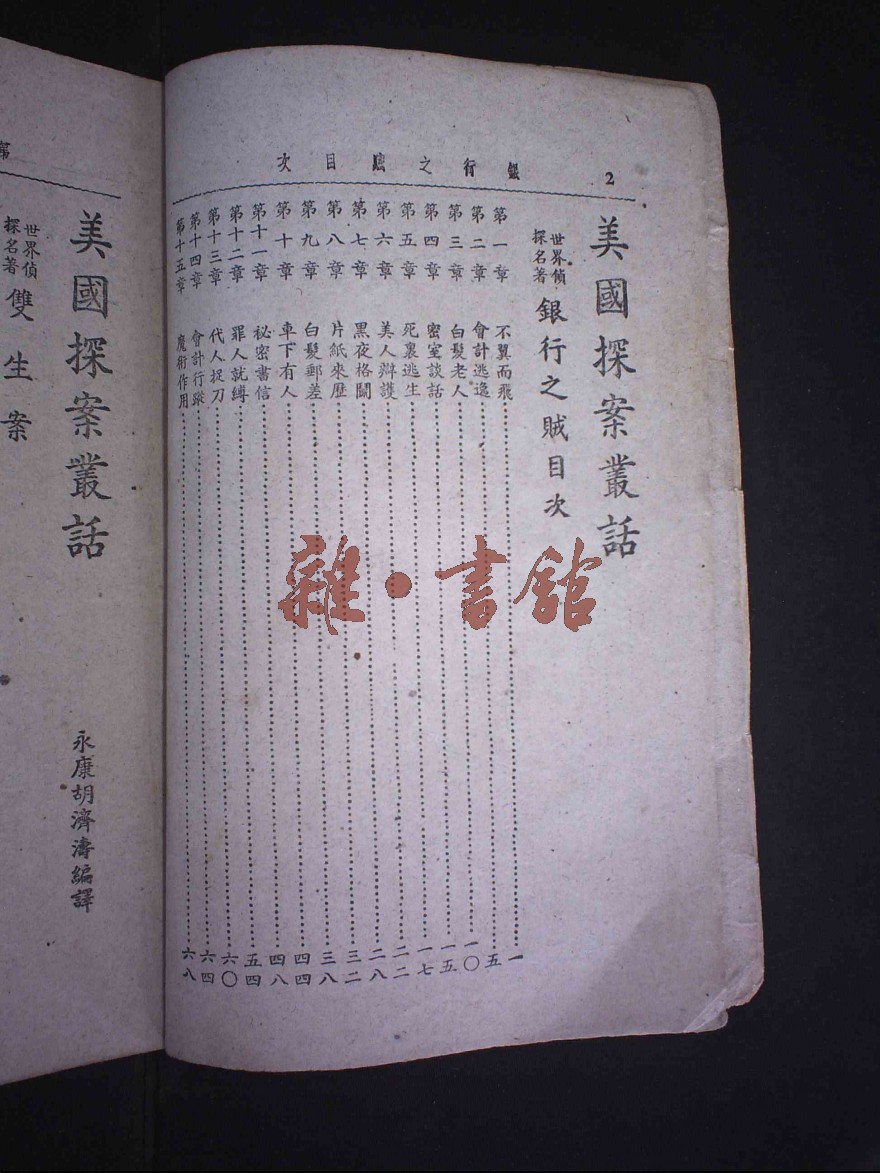 2
銀行之賊目次
美國探案叢話
世界偵探名著 銀行之賊目次
第一章 不翼而飛……一
第二章 會計逃逸……五
第三章 白髮老人……一〇
第四章 密室談話……一五
第五章 死裏逃生……一七
第六章 美人辯護……二二
第七章 黑夜格鬭……二八
第八章 片紙來歷……三二
第九章 白髮郵差……三八
第十章 車下有人……四四
第十一章 秘密書信……四八
第十二章 罪人就縛……五四
第十三章 代人捉刀……六〇
第十四章 會計行蹤……六四
第十五章 魔術作用……六八
雜·書館
第
美國探案叢話
永康胡濟濤編譯
世界偵探名著 雙生案